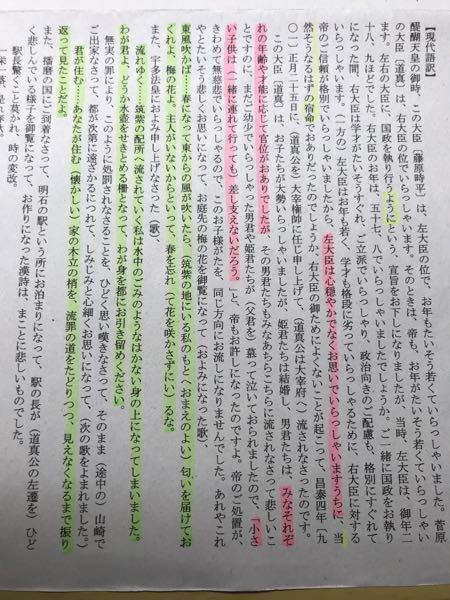 【現代語訳】
醍醐天皇の御時、この大臣(藤原時平)は、左大臣の位で、お年もたいそう若くていらっしゃいました。菅原
の大臣(道真)は、右大臣の位でいらっしゃいます。そのときは、帝も、お年がたいそう若くていらっしゃい
ます。左右の大臣に、国政を執り行うようにという、宣旨をお下しになりましたが、当時、左大臣は、御年二
十八、九ほどでした。右大臣のお年は、五十七、八でいらっしゃいましたでしょうか。ご一緒に国政をお執り
になった間、右大臣は学才がたいそうすぐれ、ご立派でいらっしゃり、政治向きのご配慮も、格別にすぐれて
いらっしゃいます。(一方の)左大臣はお年も若く、学才も格段に劣っていらっしゃるために、右大臣に対する
帝のご信頼が格別でいらっしゃいましたから、左大臣は心穏やかでなくお思いでいらっしゃいますうちに、当
然そうなるはずの宿命でおありだったのでしょうか、右大臣の御ためによくないことが起こって、昌泰四年(九
〇一)正月二十五日に、(道真公を)大宰権帥に任じ申し上げて、(道真公は大宰府へ)流されなさったのです。
この大臣(道真)は、お子たちが大勢いらっしゃいましたが、姫君たちは結婚し、男君たちは、みなそれぞ
れの年齢や才能に応じて官位がおありでしたが、その男君たちもみなあちらこちらに流されなさって悲しいこ
とですのに、まだご幼少でいらっしゃった男君や姫君たちが(父君を)慕って泣いておられましたので、「小さ
い子供は(一緒に連れて行っても)差し支えないだろう。」と、帝もお許しになったのですよ。帝のご処置が、
きわめて無慈悲でいらっしゃるので、このお子様がたを、同じ方向にお流しになりませんでした。あれやこれ
やとたいそう悲しくお思いになって、お庭先の梅の花を御覧になって(およみになった歌)、
東風吹かば……春になって東からの風が吹いたら、(筑紫の地にいる私のもとへおまえのよい)匂いを届けてお
くれよ、梅の花よ。主人がいないからといって、春を忘れ(て花を咲かさずにい)るな。
また、宇多法皇におよみ申し上げなさった(歌)、
流れゆく……筑紫の配所へ流されていく私は水中のごみのようなはかない身の上になってしまいました。
わが君よ、どうか水屑をせきとめる柵となって、わが身を都にお引き留めください。
無実の罪により、このように処罰されなさることを、ひどく思い嘆きなさって、そのまま(途中の)山崎で
ご出家なさって、都が次第に遠ざかるにつれて、しみじみと心細くお思いになって、(次の歌をよまれました。)
君が住む……あなたが住む(懐かしい)家の木立の梢を、流罪の道をたどりつつ、見えなくなるまで振り
返って見たことだよ。
また、播磨の国にご到着なさって、明石の駅という所にお泊まりになって、駅の長が(道真公の左遷を)ひど
く悲しんでいる様子を御覧になって、お作りになった漢詩は、まことに悲しいものでした。
駅長驚くこと莫かれ、時の変改。
一栄一落、是れ春秋